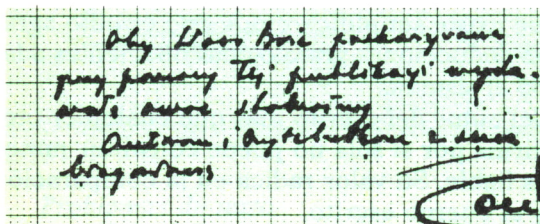 Oby Słowo Boże przekazywane
przy pomocy tej publikacji wyda-
wało owoc stokrotny
Autorom i Czytelnikom z serca
błogosławię